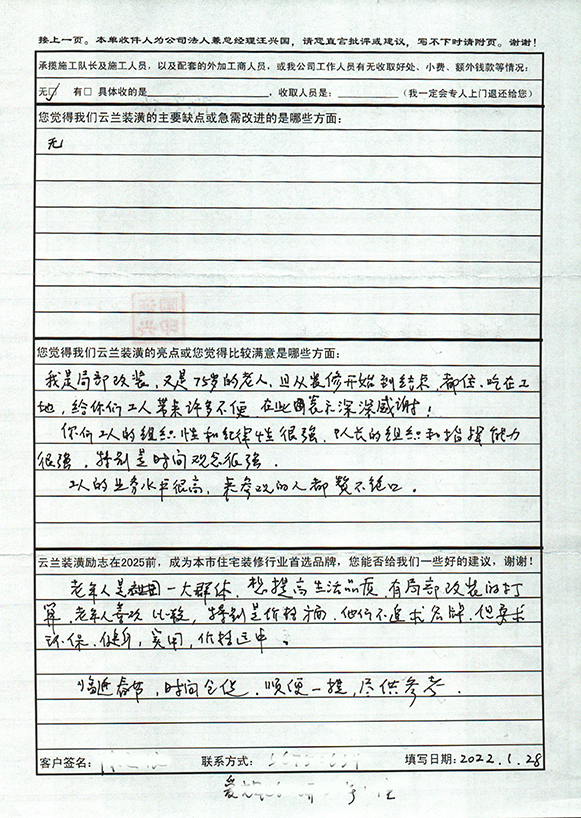 接上一页。本单收件人为公司法人兼总经理汪兴国，请您直言批评或建议，写不下时请附页。谢谢！
承揽施工队长及施工人员，以及配套的外加工商人员，或我公司工作人员有无收取好处、小费、额外钱款等情况：
无☑ 有□ 具体收的是＿＿＿＿＿＿＿＿，收取人员是：＿＿＿＿＿＿（我一定会专人上门退还给您）
您觉得我们云兰装潢的主要缺点或急需改进的是哪些方面：
无
您觉得我们云兰装潢的亮点或您觉得比较满意是哪些方面：
我是局部改装，又是75岁的老人，且从装修开始到结束都住、吃在工
地，给你们工人带来许多不便 在此表示深深感谢！
你们工人的组织性和纪律性很强，队长的组织和指挥能力
很强，特别是时间观念很强。
工人的业务水平很高，来参观的人都赞不绝口。
云兰装潢励志在2025前，成为本市住宅装修行业首选品牌，您能否给我们一些好的建议，谢谢！
老年人是一大群体，想提高生活品质，有局部改装的打
算，老年人喜欢比较，特别是价格方面，他们不追求名牌，但要求
环保，健身，实用，价格适中。
临近春节，时间仓促，顺便一提，尽供参考．
客户签名： 联系方式： 填写日期：2022.1.28